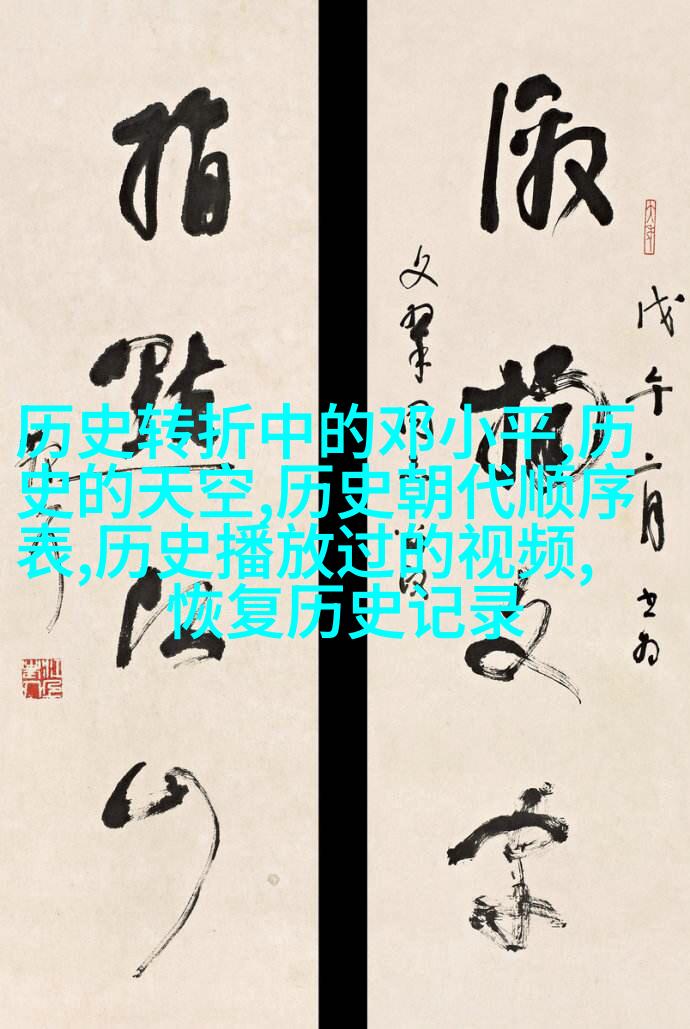 激揚文字
戊午二月 书为
指點江山
历史转折中的邓小平,历
史的天空,历史朝代顺序
表,历史播放过的视频,
恢复历史记录